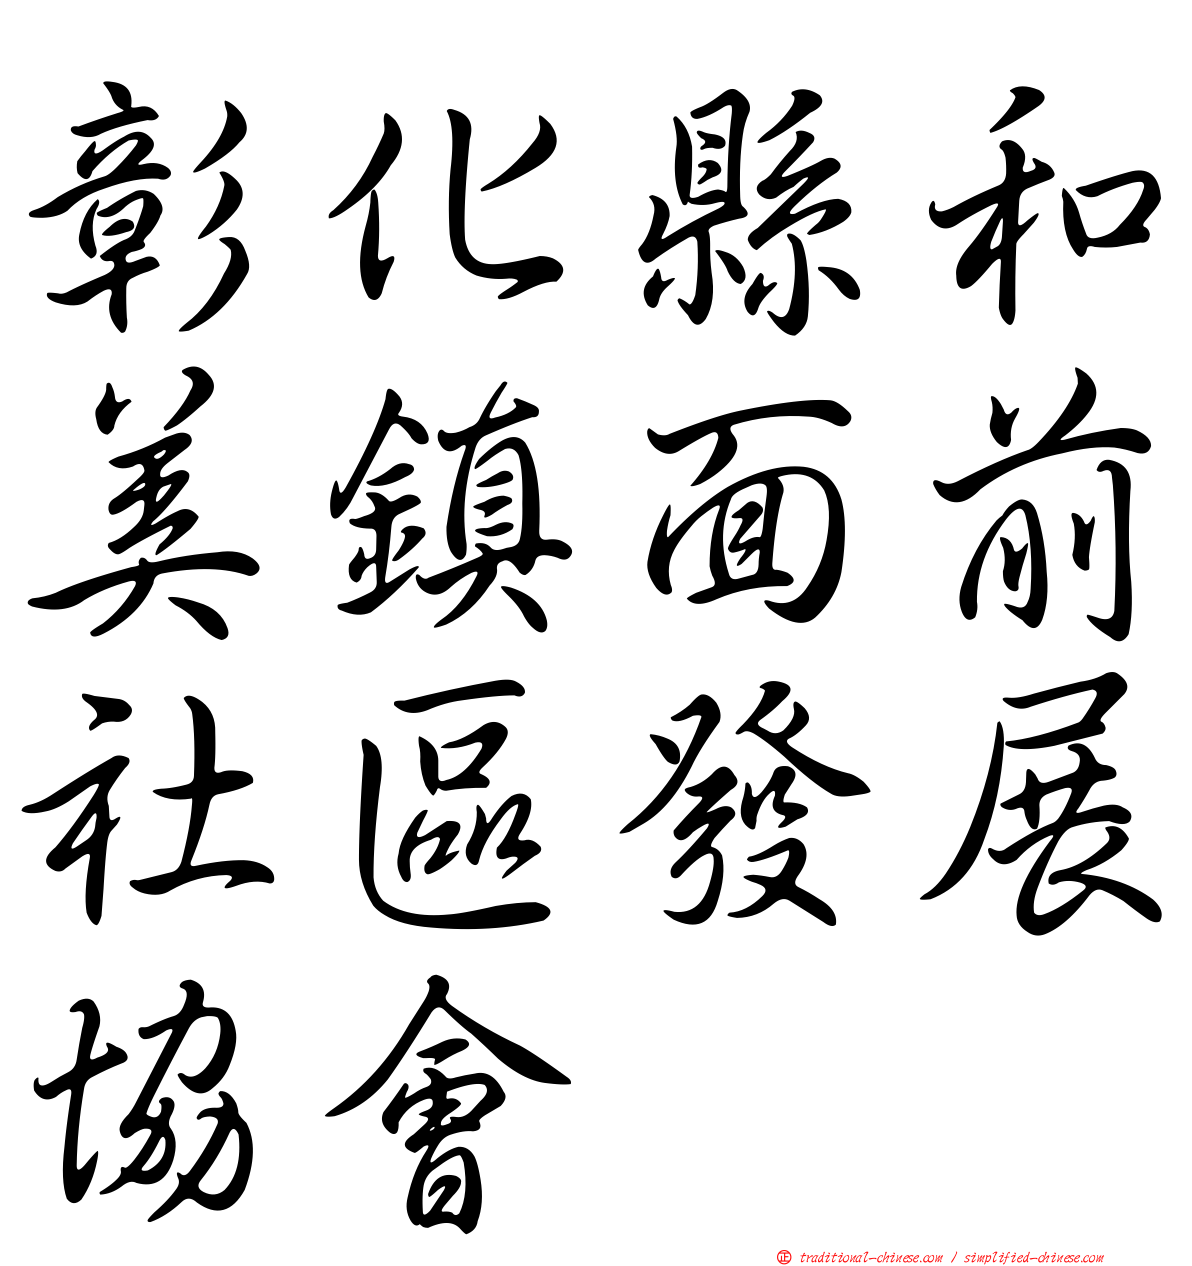 彰化縣和
美鎮面前
社區發展
協會
正 traditional-chinese.com / simplified-chinese.com